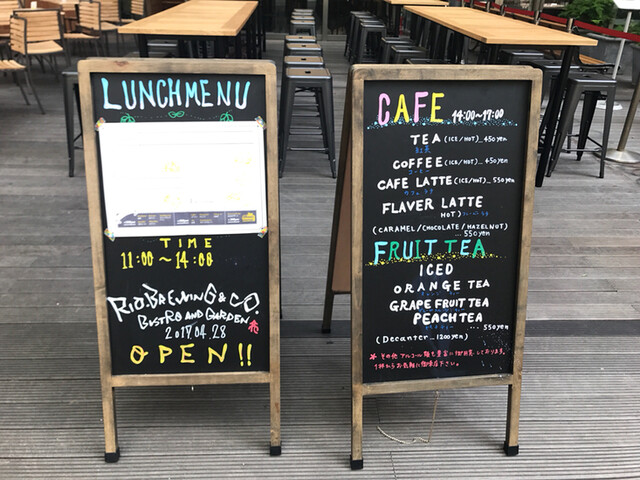 LUNCH MENU
TIME
11:00~14:00
RIO.BREWING & CO.
BISTRO AND GARDEN
2017.04.28
OPEN!!
CAFE 14:00~17:00
TEA (ICE/HOT)_450yen
紅茶
COFFEE (ICE/HOT)_450yen
コーヒー
CAFE LATTE (ICE/HOT)_550yen
カフェラテ
FLAVER LATTE
HOT)
(CARAMEL/CHOCOLATE/HAZELNUT)
...550yen
FRUIT TEA
ICED
ORANGE TEA
GRAPE FRUIT TEA
PEACH TEA
...550yen
(Decanter_1200yen)
*その他アルコール類も豊富に御用意しております。
1杯からお気軽に御来店下さい。